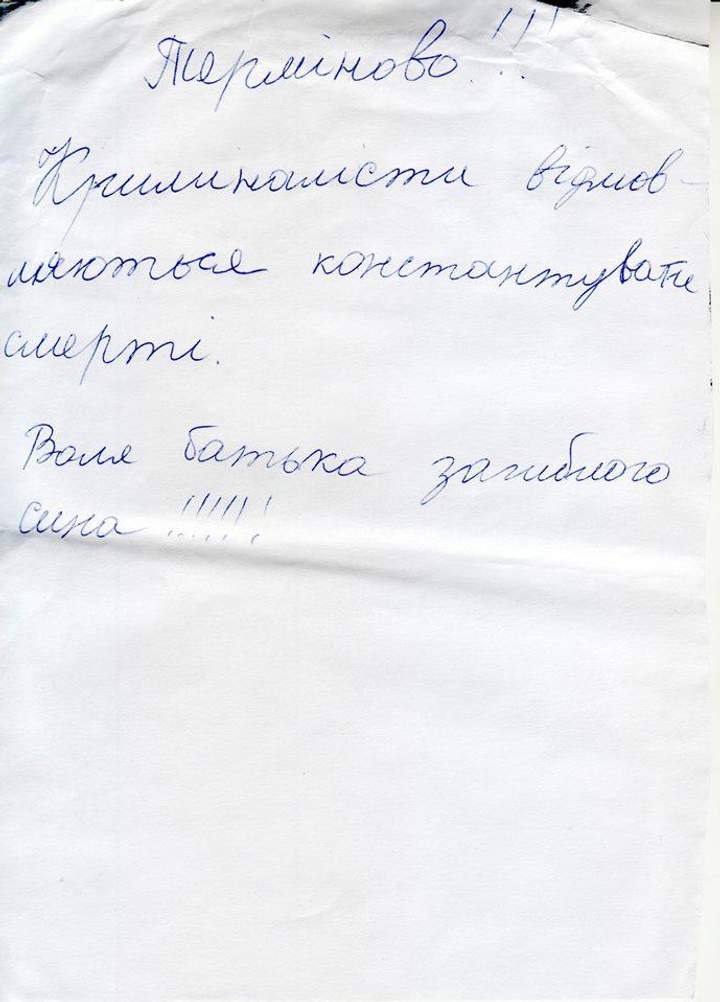 Терміново!!!
Криминалісти відмов-
ляються константувати
смерті.
Воля батька загиблого
сина !!!!!!